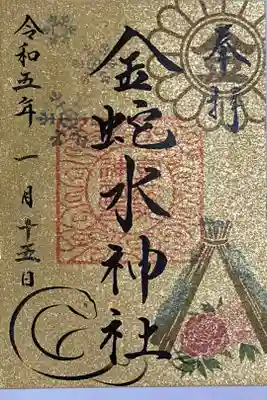 奉拝
金蛇水神社
令和五年 一月十五日